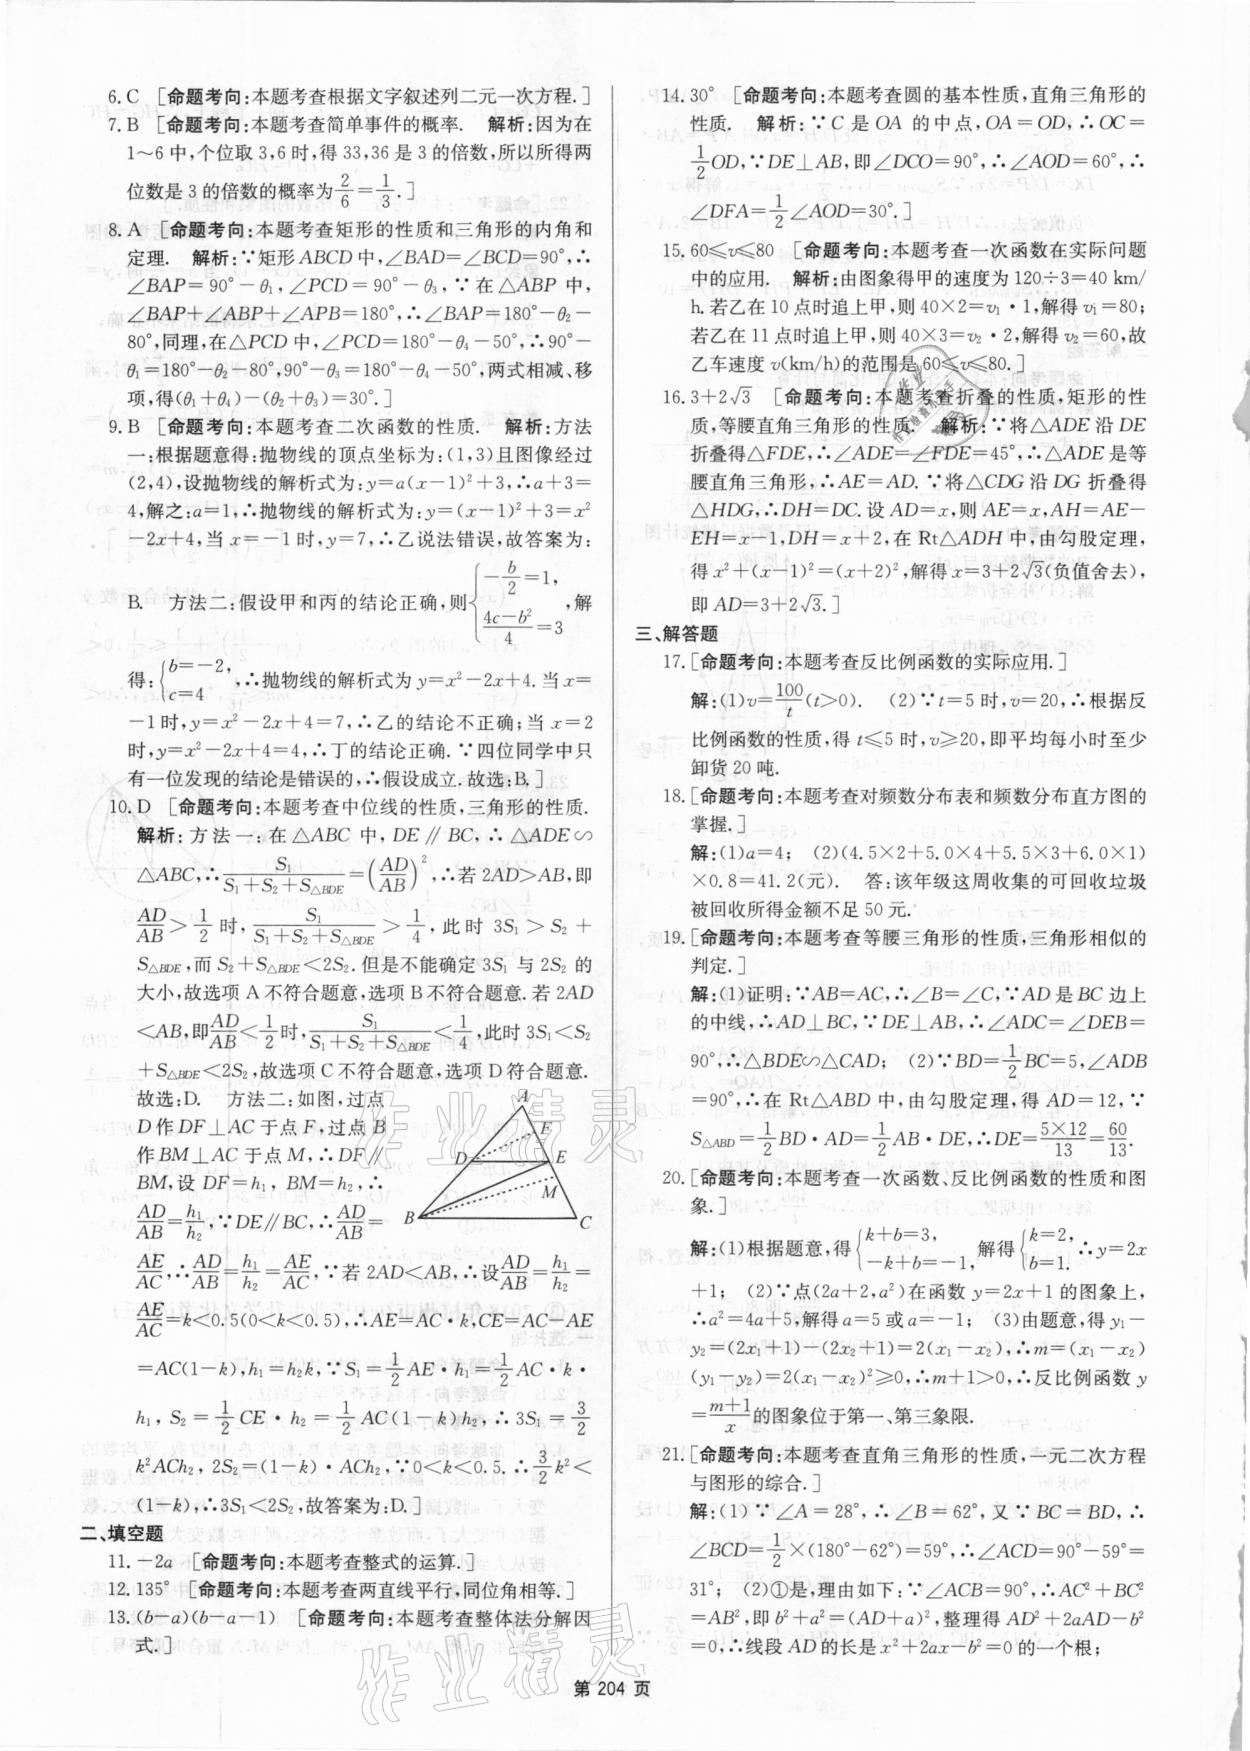 6. C [命题考向:本题考查根据文字叙述列二元一次方程.]
7. B [命题考向:本题考查简单事件的概率. 解析:因为在
1~6中,个位取3,6时,得33,36是3的倍数,所以所得两
位数是3的倍数的概率为2/6=1/3.]
8. A [命题考向:本题考查矩形的性质和三角形的内角和
定理. 解析:∵矩形ABCD中,∠BAD=∠BCD=90°,∴
∠BAP=90°-θ₁,∠PCD=90°-θ₃,∵在△ABP中,
∠BAP+∠ABP+∠APB=180°,∴∠BAP=180°-θ₂-
80°,同理,在△PCD中,∠PCD=180°-θ₄-50°,∴90°-
θ₁=180°-θ₂-80°,90°-θ₃=180°-θ₄-50°,两式相减、移
项,得(θ₁+θ₄)-(θ₂+θ₃)=30°.]
9. B [命题考向:本题考查二次函数的性质. 解析:方法
一:根据题意得:抛物线的顶点坐标为:(1,3)且图像经过
(2,4),设抛物线的解析式为:y=a(x-1)²+3,∴a+3=
4,解之:a=1,∴抛物线的解析式为:y=(x-1)²+3=x²
-2x+4,当x=-1时,y=7,∴乙说法错误,故答案为:
B. 方法二:假设甲和丙的结论正确,则{-b/2=1, (4c-b²)/4=3,解
得:{b=-2, c=4,∴抛物线的解析式为y=x²-2x+4.当x=
-1时,y=x²-2x+4=7,∴乙的结论不正确;当x=2
时,y=x²-2x+4=4,∴丁的结论正确.∵四位同学中只
有一位发现的结论是错误的,∴假设成立.故选:B.]
10. D [命题考向:本题考查中位线的性质,三角形的性质.
解析:方法一:在△ABC中,DE∥BC,∴△ADE∽
△ABC,∴S₁/(S₁+S₂+S△BDE)=(AD/AB)²,∴若2AD>AB,即
AD/AB>1/2时,S₁/(S₁+S₂+S△BDE)>1/4,此时3S₁>S₂+
S△BDE,而S₂+S△BDE<2S₂.但是不能确定3S₁与2S₂的
大小,故选项A不符合题意,选项B不符合题意.若2AD
<AB,即AD/AB<1/2时,S₁/(S₁+S₂+S△BDE)<1/4,此时3S₁<S₂
+S△BDE<2S₂,故选项C不符合题意,选项D符合题意.
故选:D. 方法二:如图,过点
D作DF⊥AC于点F,过点B
作BM⊥AC于点M,∴DF∥
BM,设DF=h₁,BM=h₂,∴
AD/AB=h₁/h₂,∵DE∥BC,∴AD/AB=
AE/AC,∴AD/AB=h₁/h₂=AE/AC,∵若2AD<AB,∴设AD/AB=h₁/h₂=
AE/AC=k<0.5(0<k<0.5),∴AE=AC·k,CE=AC-AE
=AC(1-k),h₁=h₂k,∵S₁=1/2AE·h₁=1/2AC·k·
h₁,S₂=1/2CE·h₂=1/2AC(1-k)h₂,∴3S₁=3/2
k²ACh₂,2S₂=(1-k)·ACh₂,∵0<k<0.5.∴3/2k²<
(1-k),∴3S₁<2S₂,故答案为:D.]
A
E
D
E
M
B
C
二、填空题
11. -2a [命题考向:本题考查整式的运算.]
12. 135° [命题考向:本题考查两直线平行,同位角相等.]
13. (b-a)(b-a-1) [命题考向:本题考查整体法分解因
式.]
14. 30° [命题考向:本题考查圆的基本性质,直角三角形的
性质. 解析:∵C是OA的中点,OA=OD,∴OC=
1/2OD,∵DE⊥AB,即∠DCO=90°,∴∠AOD=60°,∴
∠DFA=1/2∠AOD=30°.]
15. 60≤v≤80 [命题考向:本题考查一次函数在实际问题
中的应用. 解析:由图象得甲的速度为120÷3=40 km/
h.若乙在10点时追上甲,则40×2=v₁·1,解得v₁=80;
若乙在11点时追上甲,则40×3=v₂·2,解得v₂=60,故
乙车速度v(km/h)的范围是60≤v≤80.]
16. 3+2√3 [命题考向:本题考查折叠的性质,矩形的性
质,等腰直角三角形的性质. 解析:∵将△ADE沿DE
折叠得△FDE,∴∠ADE=∠FDE=45°,∴△ADE是等
腰直角三角形,∴AE=AD.∵将△CDG沿DG折叠得
△HDG,∴DH=DC.设AD=x,则AE=x,AH=AE-
EH=x-1,DH=x+2,在Rt△ADH中,由勾股定理,
得x²+(x-1)²=(x+2)²,解得x=3+2√3(负值舍去),
即AD=3+2√3.]
三、解答题
17. [命题考向:本题考查反比例函数的实际应用.]
解:(1)v=100/t(t>0). (2)∵t=5时,v=20,∴根据反
比例函数的性质,得t≤5时,v≥20,即平均每小时至少
卸货20吨.
18. [命题考向:本题考查对频数分布表和频数分布直方图的
掌握.]
解:(1)a=4; (2)(4.5×2+5.0×4+5.5×3+6.0×1)
×0.8=41.2(元). 答:该年级这周收集的可回收垃圾
被回收所得金额不足50元.
19. [命题考向:本题考查等腰三角形的性质,三角形相似的
判定.]
解:(1)证明:∵AB=AC,∴∠B=∠C,∵AD是BC边上
的中线,∴AD⊥BC,∵DE⊥AB,∴∠ADC=∠DEB=
90°,∴△BDE∽△CAD; (2)∵BD=1/2BC=5,∠ADB
=90°,∴在Rt△ABD中,由勾股定理,得AD=12,∵
S△ABD=1/2BD·AD=1/2AB·DE,∴DE=5×12/13=60/13.
20. [命题考向:本题考查一次函数、反比例函数的性质和图
象.]
解:(1)根据题意,得{k+b=3, -k+b=-1, 解得{k=2, b=1,∴y=2x
+1; (2)∵点(2a+2,a²)在函数y=2x+1的图象上,
∴a²=4a+5,解得a=5或a=-1; (3)由题意,得y₁-
y₂=(2x₁+1)-(2x₂+1)=2(x₁-x₂),∴m=(x₁-x₂)
(y₁-y₂)=2(x₁-x₂)²≥0,∴m+1>0,∴反比例函数y
=(m+1)/x的图象位于第一、第三象限.
21. [命题考向:本题考查直角三角形的性质,一元二次方程
与图形的综合.]
解:(1)∵∠A=28°,∴∠B=62°,又∵BC=BD,∴
∠BCD=1/2×(180°-62°)=59°,∴∠ACD=90°-59°=
31°; (2)①是,理由如下:∵∠ACB=90°,∴AC²+BC²
=AB²,即b²+a²=(AD+a)²,整理得AD²+2aAD-b²
=0,∴线段AD的长是x²+2ax-b²=0的一个根;
第 204 页
作业精灵
作业精灵